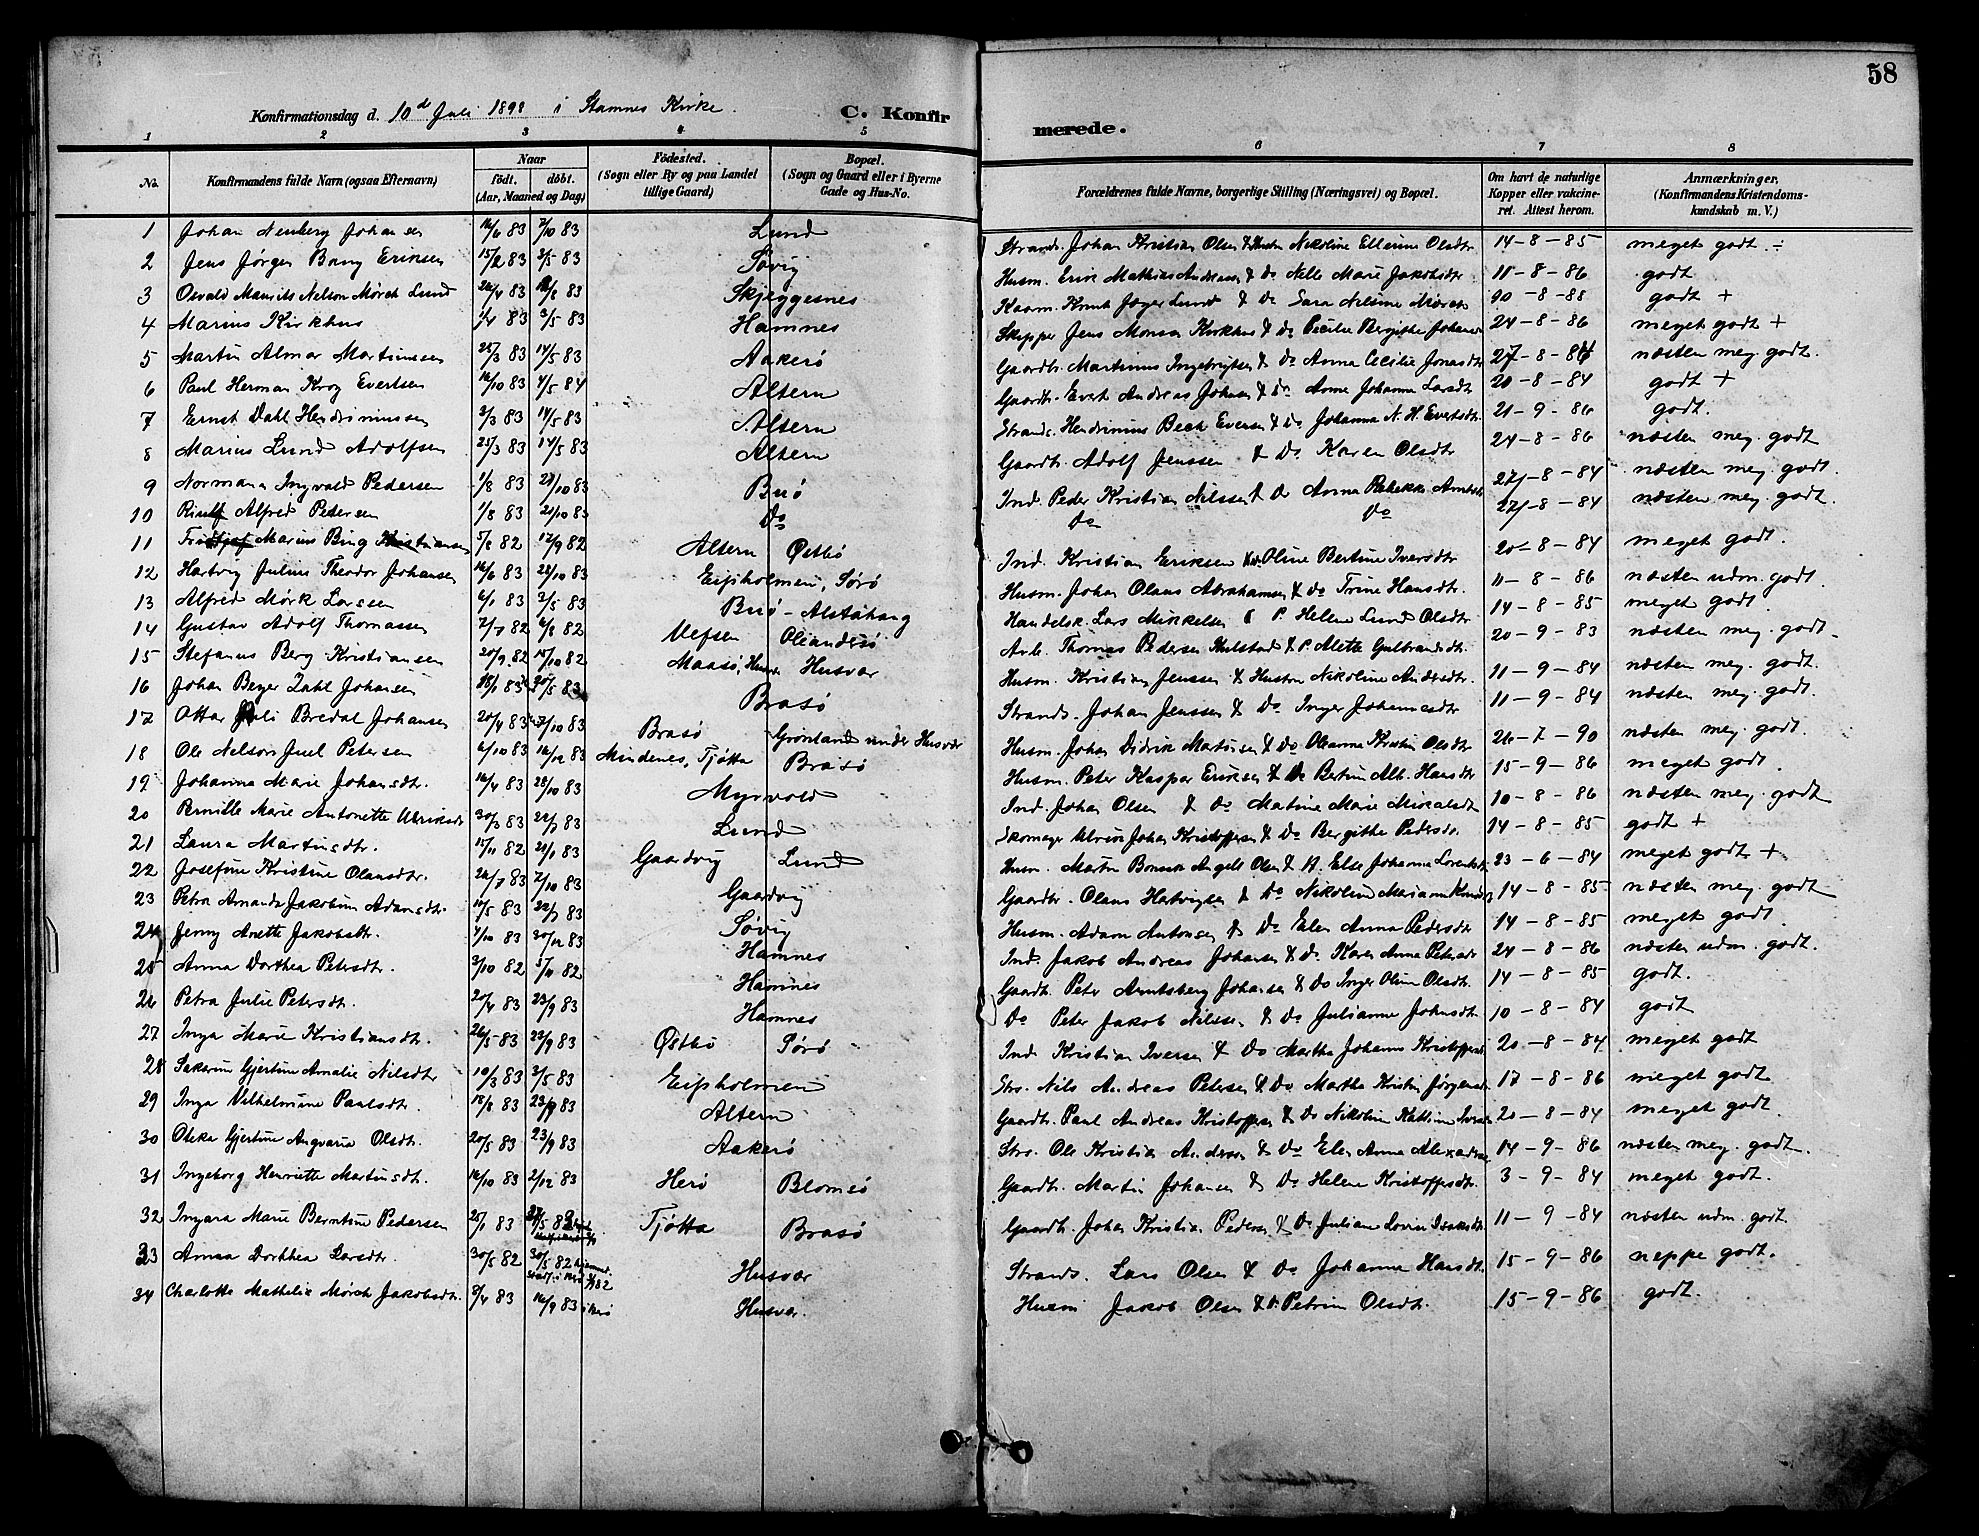 58
Konfirmationsdag d. 10de Juli 1898 i Stamnes Kirke. C. Konfirmerede.
1 2 3 4 5 6 7 8
No. Konfirmandens fulde Navn (ogsaa Efternavn) Naar födt. döbt. (Aar, Maaned og Dag) Födested. (Sogn eller By og paa Landet tillige Gaard) Bopæl. (Sogn og Gaard eller i Byerne Gade og Hus-No. Forældrenes fulde Navne, borgerlige Stilling (Næringsvei) og Bopæl. Om havt de naturlige Kopper eller vakcineret. Attest herom. Anmærkninger, (Konfirmandens Kristendomskundskab m. V.)
1 Johan Nenberg Johansen 16/6 83 7/10 83 Lund Strands. Johan Kristian Olsen & Hustru Nikoline Ellerine Olsdtr 14-8-85 meget godt ÷
2 Jens Jörgen Bang Eriksen 15/2 83 3/5 83 Sövig Husm. Erik Mathias Andreasen & Do Nelle Marie Jakobsdtr 18-8-86 godt
3 Osvald Maurits Nelson Mörch Lund 24/4 83 83 Skjeggesnes Kaarm. Knut Jæger Lund & Do Sara Nilsine Mörch 90-8-88 godt +
4 Marius Kirkhus 1/4 83 3/5 83 Hamnes Skipper Jens Monsen Kirkhus & Do Cecilie Bergithe Johansd 24-8-86 meget godt +
5 Martin Almar Martinussen 28/3 83 14/5 83 Aakerö Gaardbr. Martinus Ingebrigtsen & Do Anna Cecilie Jonasdtr 27-8-84 næsten meg. godt.
6 Paul Herman Krog Evertsen 16/10 83 4/5 84 Altern Gaardbr. Evert Andreas Johnsen & Do Anne Johanna Larsdtr 20-8-84 godt +
7 Ernst Dahl Hendrinussen 3/3 83 14/5 83 Altern Strands. Hendrinius Bech Eversen & Do Johanna N. H. Evertsdtr. 21-9-86 godt.
8 Marius Lund Adolfsen 25/3 83 14/5 83 Altern Gaardbr. Adolf Jenssen & Do Karen Olsdtr 24-8-86 næsten meg. godt
9 Normann Ingvald Pedersen 1/8 83 21/10 83 Buö Ind. Peder Kristian Nilssen & Do Anna Rebekka Arntsdtr 27-8-84 næsten meg. godt.
10 Rinulf Alfred Petersen 1/8 83 21/10 83 Do Do Do 27-8-84 næsten meg. godt.
11 Fridtjof Marius Bing Kristiansen 5/8 82 17/9 82 Altern Östbö Ind. Kristian Eriksen Oline Bertine Iversdtr 20-8-84 meget godt.
12 Hartvig Julius Theodor Johansen 16/6 83 28/10 83 Eipholmen, Sörö Husm. Johan Olaus Abrahamsen & Do Trine Hansdtr. 11-8-86 næsten udm. godt.
13 Alfred Mörk Larsen 6/1 83 3/5 83 Buö - Alstahaug Handelsk. Lars Mikkelsen & P. Helene Lund Olsdtr 14-8-85 meget godt.
14 Gustav Adolf Thomassen 7/7 82 6/8 82 Vefsen Oleandersö Arb. Thomas Pedersen Hulstad & P. Alette Gulbransdtr. 20-9-83 næsten meg. godt.
15 Stefanus Berg Kristiansen 20/9 82 15/10 82 Maasö, Husvær Husvær Husm. Kristian Jenssen & Hustru Nikoline Andersdtr. 11-9-84 næsten meg. godt.
16 Johan Beyer Zahl Johansen 18/1 83 20/5 83 Brasö Strands. Johan Jenssen & Do. Inger Johannesdtr 11-9-84 næsten meg. godt.
17 Ottar Juli Bredal Johansen 20/4 83 7/10 83 Brasö Grönland under Husvær Husm. Johan Didrik Martinsen & Do Oleanna Kristin Olsdtr 26-7-90 næsten meg. godt.
18 Ole Nelson Juel Petersen 6/10 83 16/12 83 Mindenes, Tjötta Brasö Husm. Peter Kaspar Eriksen & Do Bertine Alb. Hansdtr 15-9-86 meget godt.
19 Johanna Marie Johansdtr. 16/4 83 28/10 83 Myrvold Ind. Johan Olsen & Do Martine Marie Mikalsdtr 10-8-86 næsten meg. godt
20 Pernille Marie Antonette Ulriksdtr 30/3 83 22/7 83 Lund Skomager Ulrik Johan Kristoffersen & Do Bergithe Pedersdtr. 14-8-85 godt +
21 Laura Martinsdtr. 15/11 82 21/1 83 Gaardvig Lund Husm. Martin Angell Olsen & H. Else Johanna Lorentsdtr 23-6-84 meget godt +
22 Josefine Kristine Olausdtr. 24/7 83 7/10 83 Gaardvig Gaardbr. Olaus Hartvigsen & Do Nikoline Mariann 14-8-85 næsten meg. godt
23 Petra Amanda Jakobine Adamsdtr. 10/5 83 22/7 83 Sövig Husm. Adam Antonsen & Do Elen Anna Pedersdtr 14-8-85 meget godt
24 Jenny Anette Jakobsdtr. 4/10 83 30/12 83 Hamnes Ind. Jakob Andreas Johansen & Do. Karen Anna Petersdtr 24-8-86 næsten udm. godt.
25 Anna Dorthea Petersdtr. 3/10 82 5/11 82 Hamnes Gaardbr. Peter Arntsberg Johansen & Do Inger Oline Olsdtr. 14-8-85 godt.
26 Petra Julie Petersdtr. 20/4 83 23/9 83 Hamnes Do Peter Jakob Nilssen & Do Julianne Johnsdtr 10-8-84 godt
27 Inga Marie Kristiansdtr. 26/5 83 23/9 83 Östbö Sörö Ind. Kristian Iversen & Do Martha Johanna Kristoffersdtr 20-8-84 meget godt
28 Sakarine Gjertine Amalie Nilsdtr 10/3 83 3/5 83 Eipholmen Str. Nils Andreas Petersen & Do Martha Kristin Jörgensdtr 17-8-86 meget godt
29 Inga Vilhelmine Paulsdtr. 18/8 83 23/9 83 Altern Gaardbr. Paul Andreas Kristoffersen & Do Nikoline Kathrine Iversd 20-8-84 meget godt.
30 Oteka Gjertine Angvaria Olsdtr. 20/5 83 23/9 83 Aakerö Str. Ole Kristian Andersen & Do Elen Anna Alexandersd 14-9-86 næsten meg. godt.
31 Ingeborg Henriette Martinsdtr. 16/10 83 2/12 83 Herö Blomsö Gaardbr. Martin Johansen & Do Helene Kristoffersdtr. 3-9-84 meget godt.
32 Ingara Marie Berntine Pedersen 25/1 83 27/5 83 Tjötta Brasö Gaardbr. Johan Kristian Pedersen & Do Juliane Lovise Isaksdtr 11-9-84 næsten udm. godt
33 Anna Dorthea Larsdtr. 30/5 82 30/5 82 hjemmed. Stadf. i Herö 82 Husvær Strands. Lars Olsen & Do Johanna Hansdtr. 15-9-86 neppe godt.
34 Charlotte Mathelie Mörch Jakobsdtr. 8/4 83 16/9 83 i Herö Husvær. Husm Jakob Olsen & D. Petrine Olsdtr. 15-9-86 godt.